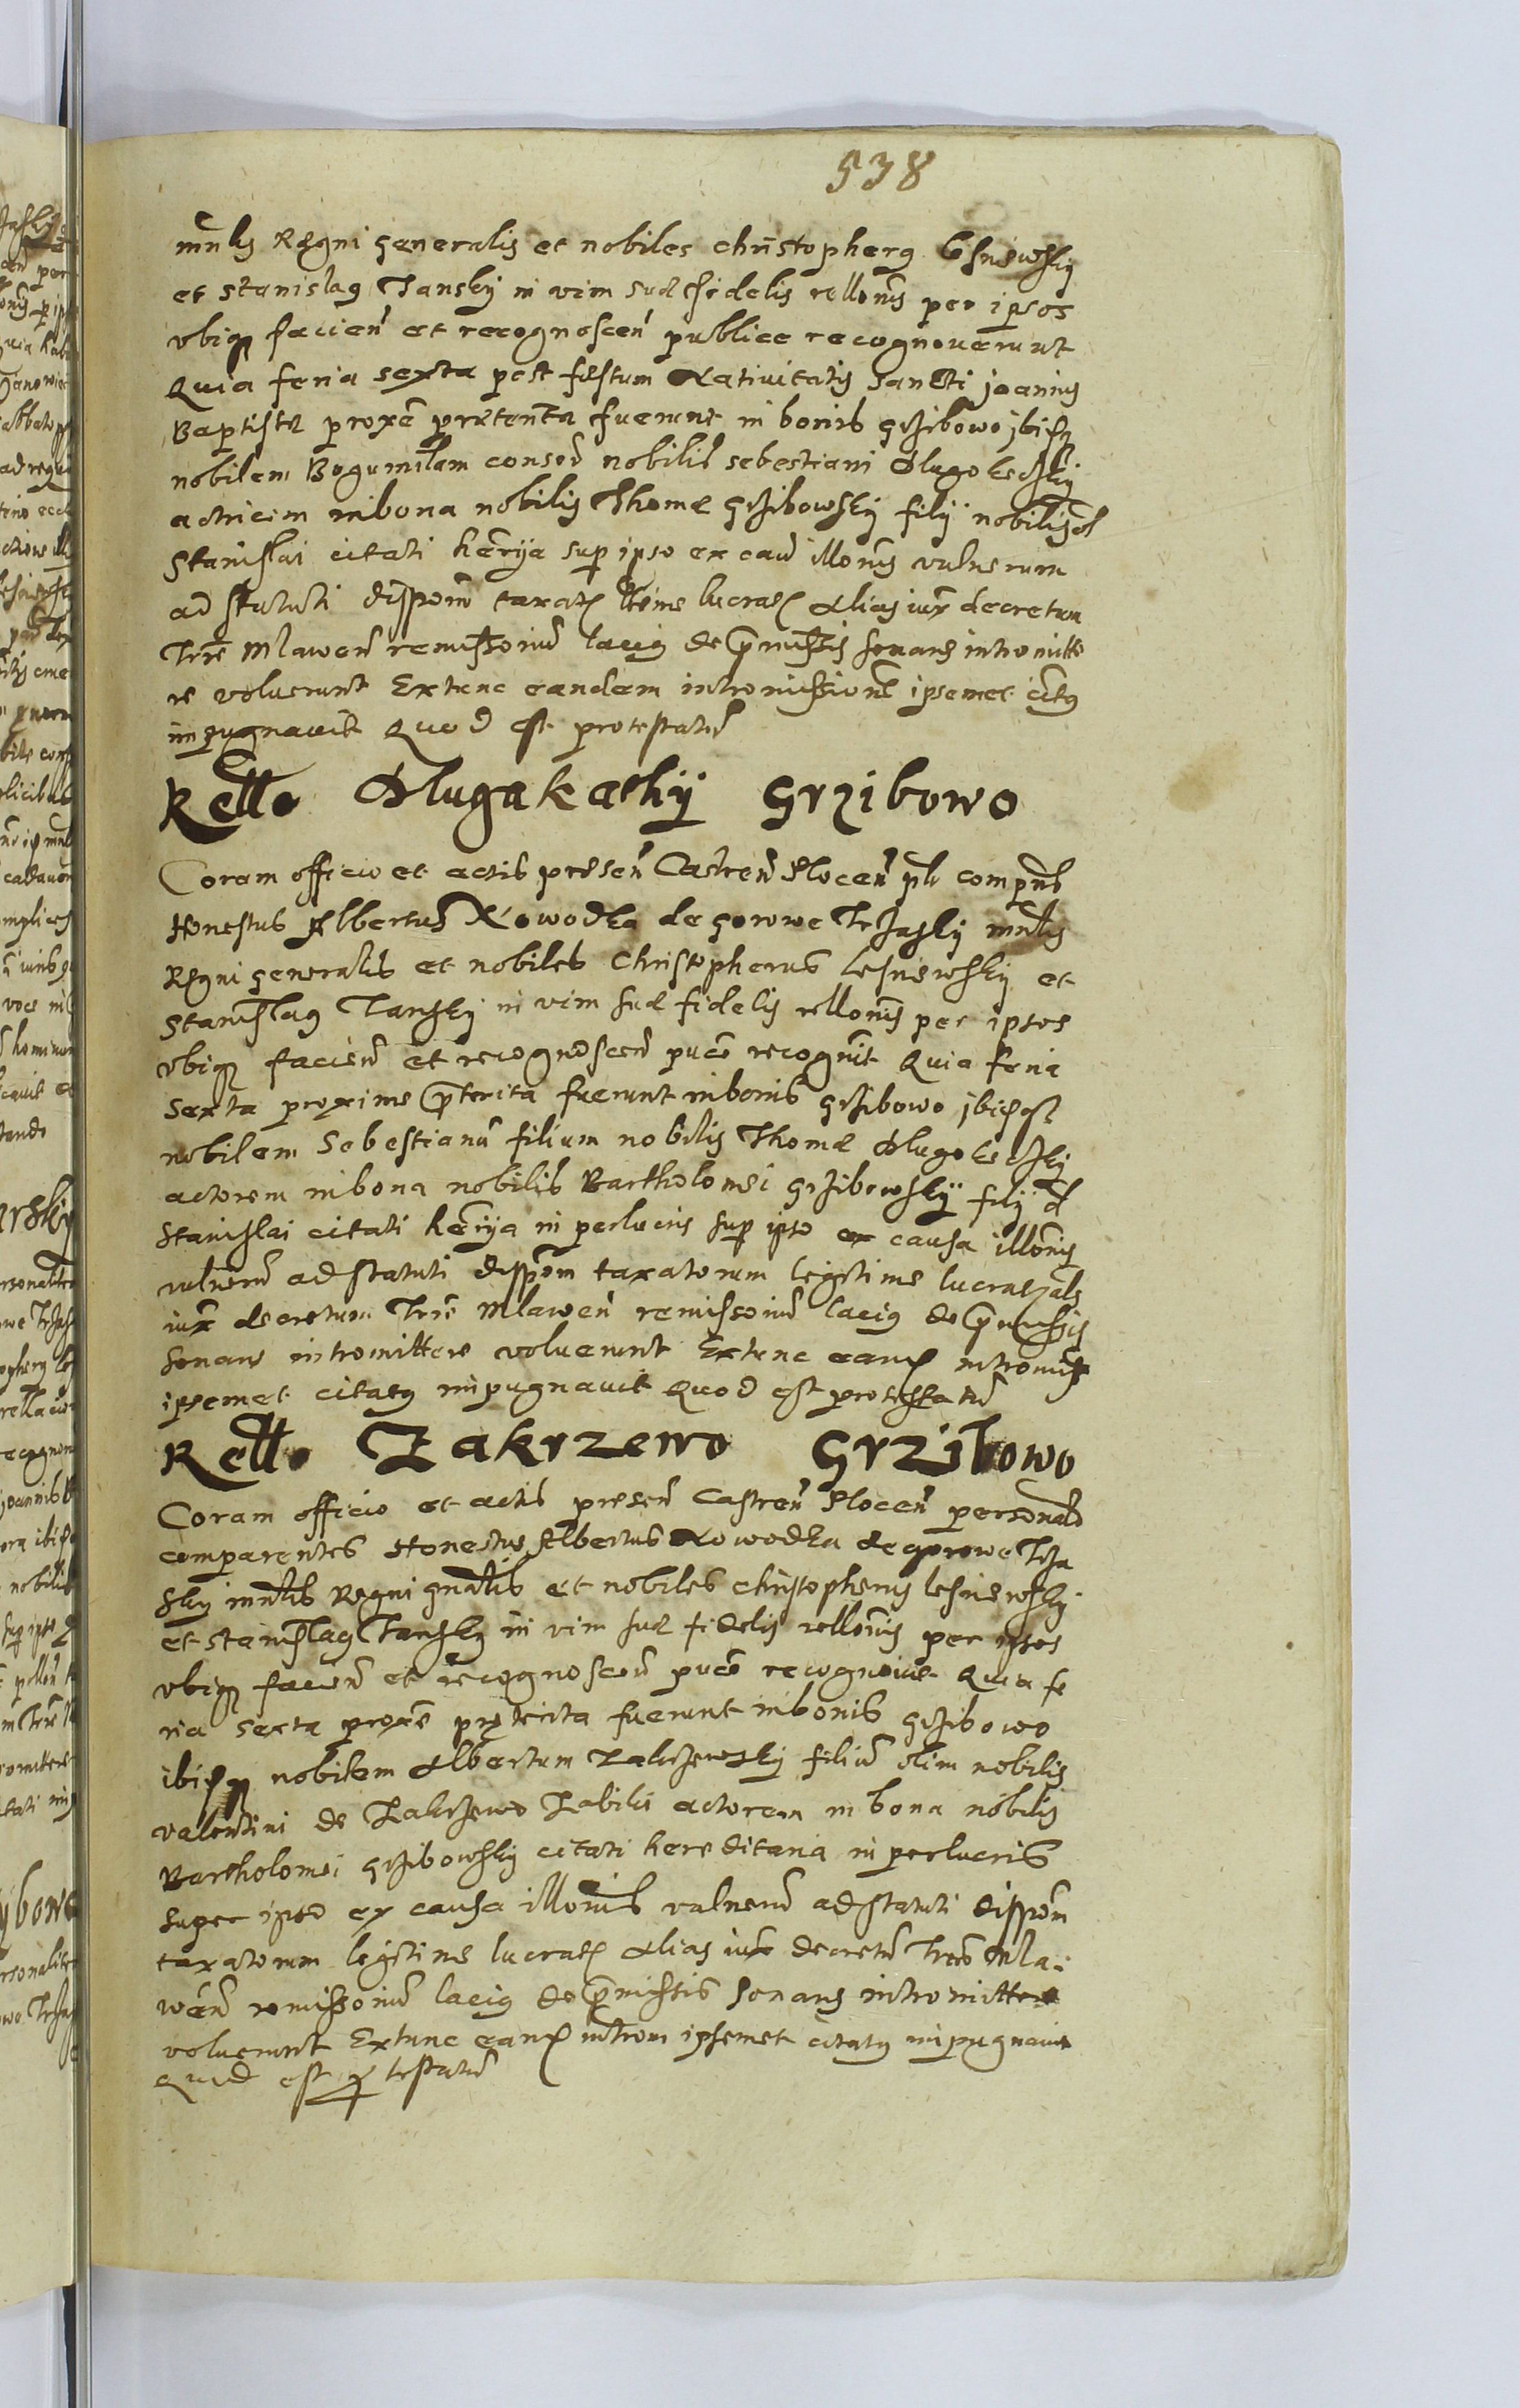 538
mnlis Regni generalis et nobiles Christopherg Lesniewsky
et Stanislag Tansky in vim suæ fidelis rellonis per ipsos
vbiq facien et recognoscen publice recognouerunt
Quia feria sexta post festum Natiuitatis Sancti Joannis
Baptistæ proxe præterita fuerunt in bonis Grzibowo ibiq
nobilem Bogumilam consor nobilis Sebestiani Dlugokeczky
actricem in bona nobilis Thomæ Grzibowsky filij nobilis ol
Stanislai citati herija sup ipso ex cau illonis vulnerum
ad statuti dispom taxator ltime lucrat Alias iux decretum
Trre Mlawen remissoriu lacig de pmissis sonans intromitte
re voluerunt Extunc eandem intromissione ipsemet citg
inpugnauit Quod est protestatu
Rello Dlugakathy Grzibowo
Coram officio et actis præsen Castren Plocen plr compns
Honestus Albertus Nowodka de Gorowe Trzasky mnlis
Regni generalis et nobiles Christopherus Lesniewsky et
Stanislag Tansky in vim suæ fidelis rellonis per ipsos
vbiq facien et recognoscen puce recognuit Quia feria
Sexta proxime pterita fuerunt in bonis Grzibowo ibiq
nobilem Sebestianu filium nobilis Thomæ Dlugokeczky
actorem in bona nobilis Bartholomei Grzibowsky filij ol
Stanislai citati herija in perlucris sup ipso ex causa illonis
vulneru ad statuti dispom taxatorum legitime lucrat als
iux decretum Trre Mlawen remissoriu lacig de pmissis
sonans intromittere voluerunt Extunc eand intromis
ipsemet citatg inpugnauit Quod est protestatu
Rello Zakrzewo Grzibowo
Coram officio et actis præsen Castren Plocen personalr
comparentes Honestus Albertus Nowodka de Gorowe Trza
sky mnlis Regni gnalis et nobiles Christopherus Lesniewsky
et Stanislag Tansky in vim suæ fidelis rellonis per ipsos
vbiq facien et recognoscen puce recognouit Quia fe
ria Sexta proxe præterita fuerunt in bonis Grzibowo
ibiq nobilem Albertum Zakrzewsky filiu olim nobilis
Valentini de Zakrzewo Zabiki actorem in bona nobilis
Bartholomei Grzibowsky citati hereditaria in perlucris
super ipso ex causa illonis vulneru ad statuti dispom
taxatorum legitime lucrat Alias iux decretu Trre Mla
wen remissoriu lacig de pmissis sonans intromittere
voluerunt Extunc eand introm ipsemet citatg inpugnauit
Quod est protestatu